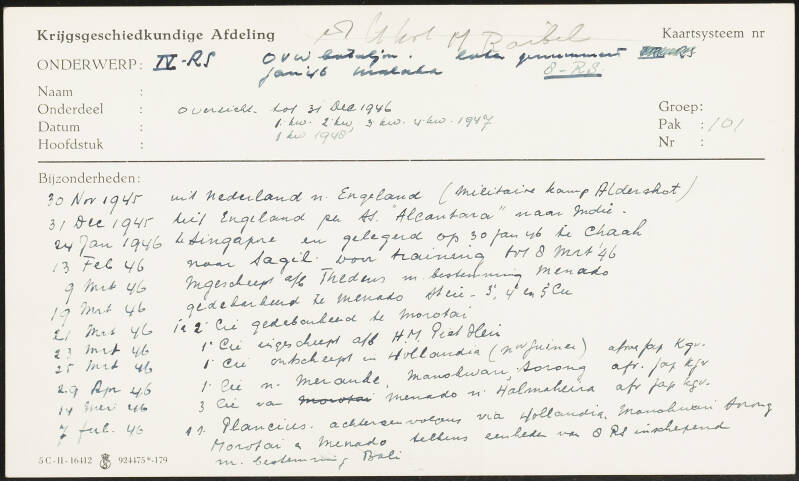 Krijgsgeschiedkundige Afdeling
Kaartsysteem nr
ONDERWERP: IV-RS OVW bataljon. later genummerd
Jan 46 Malaka 8-RS.
Naam :
Onderdeel : overzicht tot 31 Dec 1946
Groep:
Datum : 1e kw. 2e kw, 3 kw. 4 kw. 1947
Pak : 101
Hoofdstuk : 1 kw 1948
Nr :
Bijzonderheden:
30 Nov 1945 uit Nederland n. Engeland (Militaire kamp Aldershot)
31 Dec 1945 uit Engeland per ss. "Alcantara" naar Indië.
24 Jan 1946 te Singapre en gelegerd op 30 Jan 46 te Chaah
13 Feb 46 naar Sagil voor training tot 8 Mrt '46
9 Mrt 46 Ingescheept a/b Thedens m. bestemming Menado
19 Mrt 46 gedebarkeerd te Menado 3e, 4e en 5 Cie
21 Mrt 46 1e 2e Cie gedebarkeerd te Morotai
23 Mrt 46 1e Cie ingescheept a/b H.M. Piet Hein
25 Mrt 46 1e Cie ontscheept in Hollandia (Nw Guinea) afvoer Jap Kgv.
29 Apr 46 1e Cie n. Merauke, Manokwari, Sorong afv. Jap Kgv
14 Mei 46 3 Cie van Morotai Menado n. Halmaheira afv Jap kgv.
7 Jul. 46 Plancius. achtereenvolgens via Hollandia, Manokwari Sorong
Morotai en Menado telkens eenheden van 8 RS inschepend
m. bestemming Bali
5C-II-16412 924475*-179